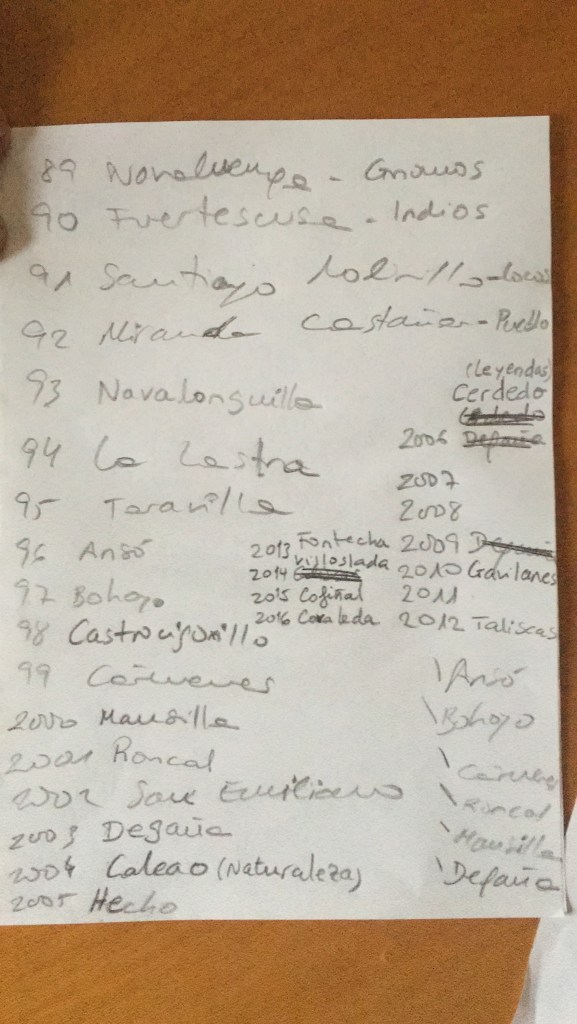 89 Navaluenga - Gnomos
90 Fuertescusa - Indios
91 Santiago - Locos
92 Miranda Castañar - Pueblo
93 Navalonguilla
(leyendas)
Cerdedo
94 La Lastra
2006
2007
95 Taravilla
2008
96 Ansó
2013 Fontecha
2009
Villoslada
2014
2010 Gavilanes
97 Bohoyo
2015 Cofiñal
2011
98 Castrocijonillo
2016 Covaleda
2012 Taliscas
99 Cármenes
\ Ansó
2000 Mansilla
\ Bohoyo
2001 Roncal
\ Cármenes
2002 San Emiliano
\ Roncal
2003 Degaña
\ Mansilla
2004 Caleao (Naturaleza)
\ Degaña
2005 Hecho